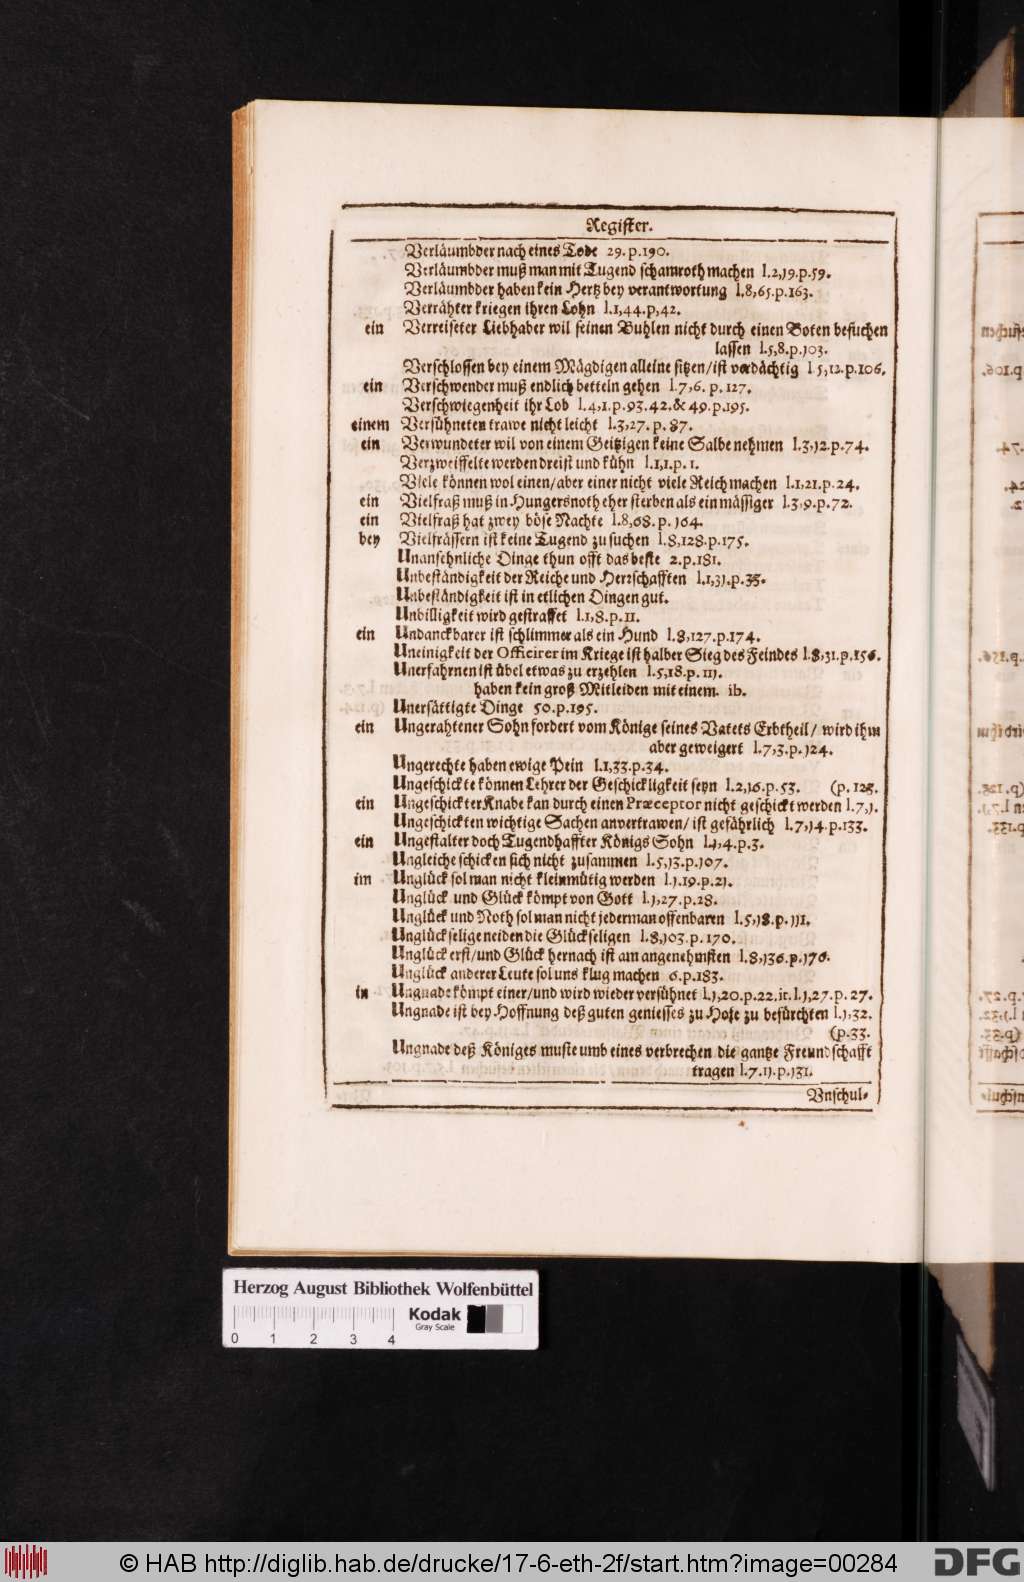 Register.
Verläumbder nach eines Tode 29. p. 190.
Verläumbder muß man mit Tugend schamroth machen l.2,19.p.59.
Verläumbder haben kein Hertz bey verantwortung l.8,65.p.163.
Verrähter kriegen ihren Lohn l.1,44.p,42.
ein Verreiseter Liebhaber wil seinen Buhlen nicht durch einen Boten besuchen
lassen l.5,8.p.103.
Verschlossen bey einem Mägdigen alleine sitzen/ist verdächtig l 5,12.p.106.
ein Verschwender muß endlich betteln gehen l.7,6. p. 127.
Verschwiegenheit ihr Lob l.4,1.p.93.42.& 49.p.195.
einem Versühneten trawe nicht leicht l.3,27. p. 87.
ein Verwundeter wil von einem Geitzigen keine Salbe nehmen l.3,12.p.74.
Verzweiffelte werden dreist und kühn l.1,1.p. 1.
Viele können wol einen/aber einer nicht viele Reich machen l.1,21.p.24.
ein Vielfraß muß in Hungersnoth eher sterben als ein mässiger l.3,9.p.72.
ein Vielfraß hat zwey böse Nachte l.8,68. p. 164.
bey Vielfrässern ist keine Tugend zu suchen l.8,128.p.175.
Unansehnliche Dinge thun offt das beste 2.p.181.
Unbeständigkeit der Reiche und Herrschafften l.1,31.p.35.
Unbeständigkeit ist in etlichen Dingen gut.
Unbilligkeit wird gestraffet l.1,8.p.11.
ein Undanckbarer ist schlimmer als ein Hund l.8,127.p.174.
Uneinigkeit der Officirer im Kriege ist halber Sieg des Feindes l.8,31.p.156.
Unerfahrnen ist übel etwas zu erzehlen l.5,18.p.111.
haben kein groß Mitleiden mit einem. ib.
Unersättigte Dinge 50.p.195.
ein Ungerahtener Sohn fordert vom Könige seines Vatets Erbtheil/ wird ihm
aber geweigert l.7,3.p.124.
Ungerechte haben ewige Pein l.1,33.p.34.
Ungeschickte können Lehrer der Geschickligkeit seyn l.2,16.p.53. (p.125.
ein Ungeschickter Knabe kan durch einen Præceptor nicht geschickt werden l.7,1.
Ungeschickten wichtige Sachen anvertrawen/ ist gefährlich l.7,14.p.133.
ein Ungestalter doch Tugendhaffter Königs Sohn l.1,4.p.3.
Ungleiche schicken sich nicht zusammen l.5,13.p.107.
im Unglück sol man nicht kleinmütig werden l.1.19.p.21.
Unglück und Glück kömpt von Gott l.1,27.p.28.
Unglück und Noth sol man nicht jederman offenbaren l.5,18.p.111.
Unglückselige neiden die Glückseligen l.8,103.p.170.
Unglück erst/und Glück hernach ist am angenehmsten l.8,136.p.176.
Unglück anderer Leute sol uns klug machen 6.p.183.
in Ungnade kömpt einer/und wird wieder versühnet l.1,20.p.22.it.l.1,27.p. 27.
Ungnade ist bey Hoffnung deß guten geniesses zu Hofe zu befürchten l.1,32.
(p.33.
Ungnade deß Königes muste umb eines verbrechen die gantze Freundschafft
tragen l.7.11.p.131.
Vnschul-
Herzog August Bibliothek Wolfenbüttel
Kodak
Gray Scale
0 1 2 3 4
© HAB http://diglib.hab.de/drucke/17-6-eth-2f/start.htm?image=00284
DFG